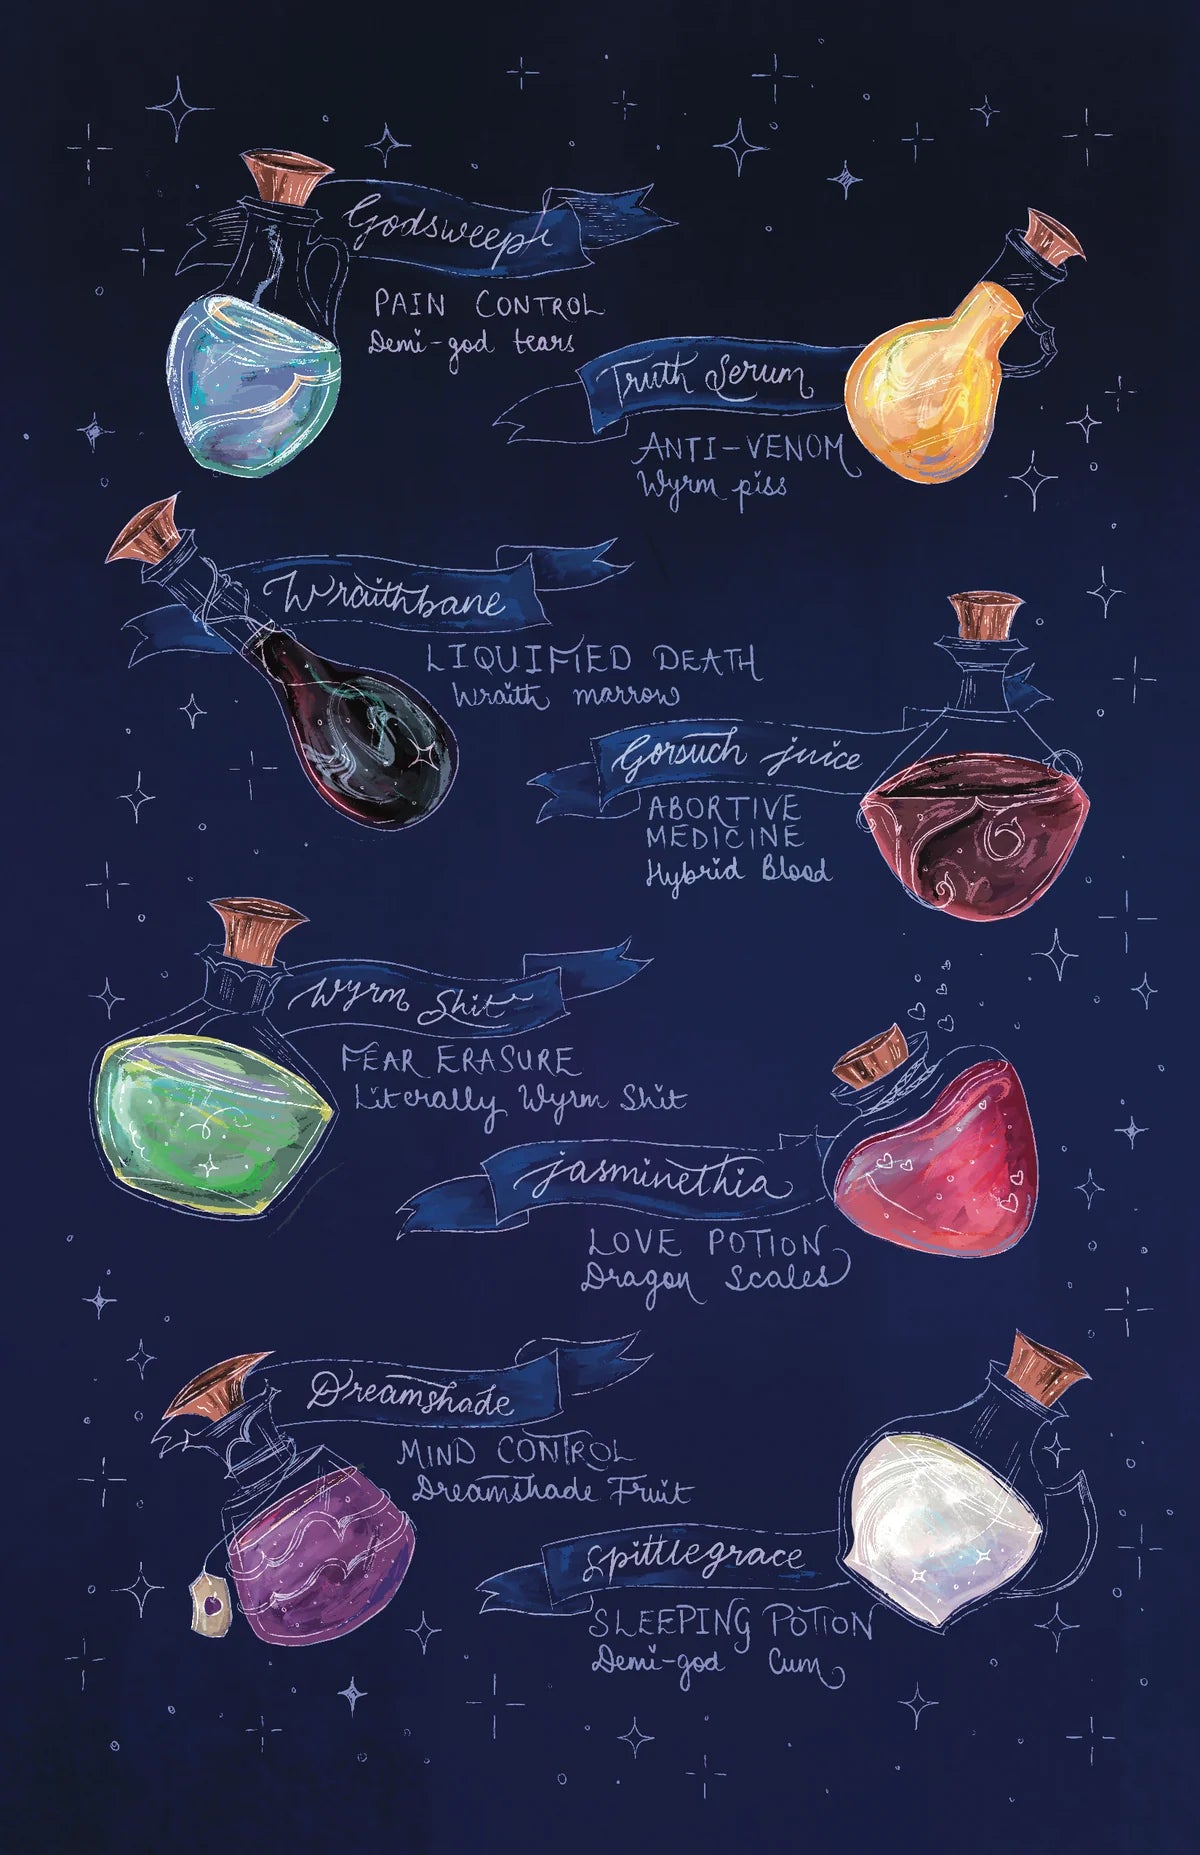 Godsweept
PAIN CONTROL
Demi-god tears
Truth Serum
ANTI-VENOM
Wyrm piss
Wraithbane
LIQUIFIED DEATH
Wraith marrow
Gorsuch juice
ABORTIVE
MEDICINE
Hybrid Blood
Wyrm Shit
FEAR ERASURE
Literally Wyrm Shit
jasminethia
LOVE POTION
Dragon Scales
Dreamshade
MIND CONTROL
Dreamshade Fruit
Spittlegrace
SLEEPING POTION
Demi-god Cum